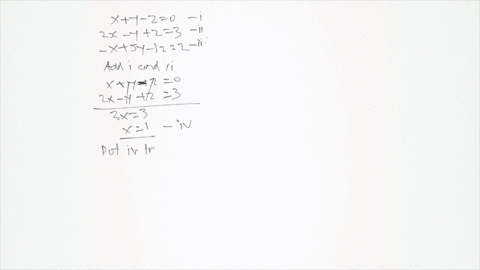 x+y-z=0 -i
2x-y+z=3 -ii
-x+5y-z=2 -iii
Add i and ii
x+y-z=0
2x-y+z=3
3x=3
x=1 -iv
Put iv in